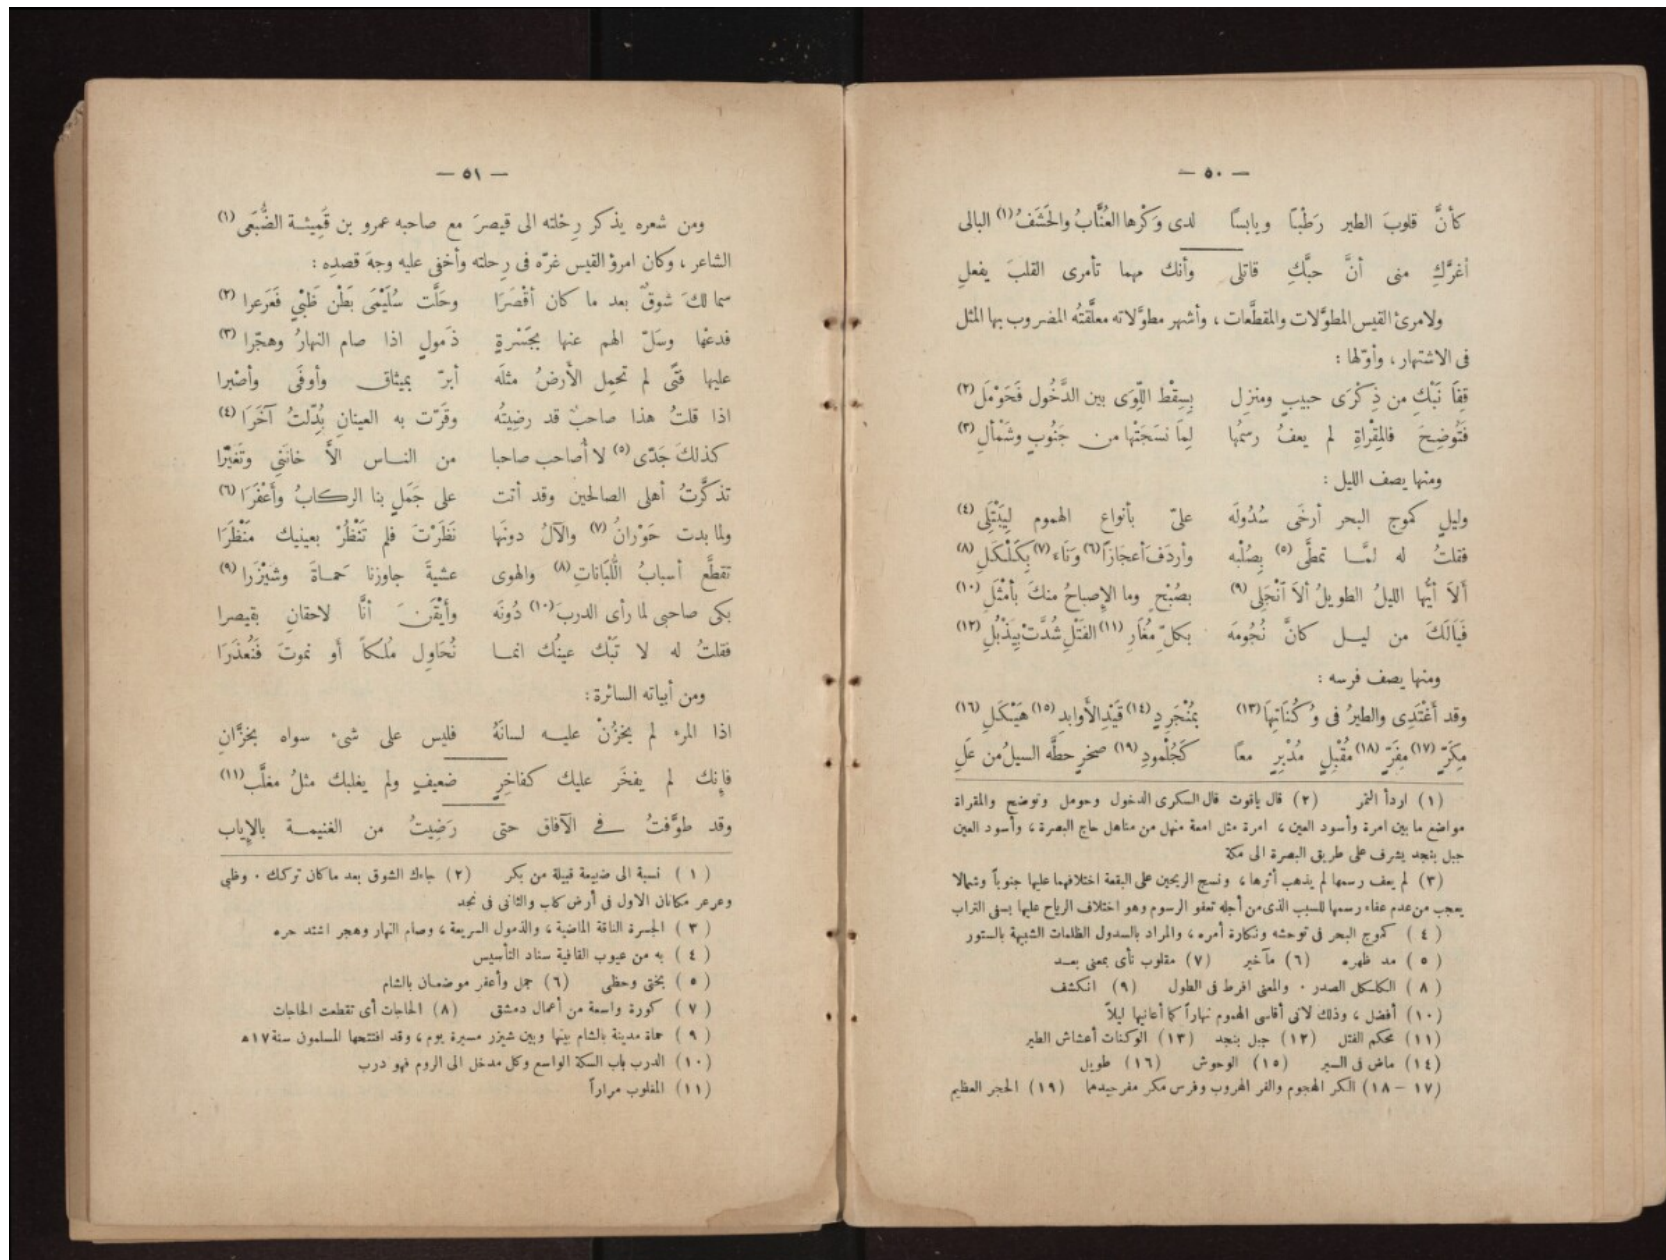 — ٥٠ —
كأنَّ قلوبَ الطير رَطْبًا ويابسًا لدى وَكْرها العُنَّابُ والحَشَفُ (١) البالى
أغرَّكِ منى أنَّ حبَّكِ قاتلى وأنك مهما تأمرى القلبَ يفعلِ
ولامرئ القيس المطوَّلات والمقطَّعات ، وأشهر مطوَّلاته معلَّقتُه المضروب بها المثل
فى الاشتهار ، وأوّلها :
قِفاَ نَبْكِ من ذِكْرَى حبيبٍ ومنزِلِ بِسِقْط اللِّوَى بين الدَّخُول فَحَوْمَلِ (٢)
فَتُوضِحَ فالمِقْراةِ لم يعفُ رسمُها لِماَ نسَجَتْها من جَنُوبٍ وشَمْألِ (٣)
ومنها يصف الليل :
وليلٍ كموج البحر أرخَى سُدُولَه علىّ بأنواع الهموم لِيَبْتَلِى (٤)
فقلتُ له لمَّا تمطَّى (٥) بِصُلْبه وأردَفَ أعجَازاً (٦) وَنَاء (٧) بِكَلْكَلِ (٨)
أَلاَ أيُّها الليلُ الطويلُ ألاَ ٱنْجَلِى (٩) بصُبْحٍ وما الإصباحُ منكَ بأمْثَلِ (١٠)
فَيَالَكَ من ليل كانَّ نُجُومَه بكلّ مُغَارِ (١١) الفَتْلِ شُدَّت بِيَذْبُلِ (١٢)
ومنها يصف فرسه :
وقد أَغْتَدِى والطيرُ فى وُكُنَاتِها (١٣) بمُنْجَرِدٍ (١٤) قَيْدِ الأوابدِ (١٥) هَيْكَلِ (١٦)
مِكَرٍّ (١٧) مِفَرٍّ (١٨) مُقْبِلٍ مُدْبِرٍ معًا كَجُلْمودِ (١٩) صخرٍ حطَّه السيلُ من عَلِ
(١) اردأ التمر (٢) قال ياقوت قال السكرى الدخول وحومل وتوضح والمقراة
مواضع ما بين امرة وأسود العين ، امرة مثل امعة منهل من مناهل حاج البصرة ، وأسود العين
جبل بنجد يشرف على طريق البصرة الى مكة
(٣) لم يعف رسمها لم يذهب أثرها ، ونسج الريحين على البقعة اختلافهما عليها جنوباً وشمالا
يعجب من عدم عفاء رسمها للسبب الذى من أجله تعفو الرسوم وهو اختلاف الرياح عليها بسفى التراب
(٤) كموج البحر فى توحشه ونكارة أمره ، والمراد بالسدول الظلمات الشبيهة بالستور
(٥) مد ظهره (٦) مآخير (٧) مقلوب نأى بمعنى بعد
(٨) الكلكل الصدر . والمعنى افرط فى الطول (٩) انكشف
(١٠) أفضل ، وذلك لانى أقاسى الهموم نهاراً كما أعانيها ليلاً
(١١) محكم الفتل (١٢) جبل بنجد (١٣) الوكنات أعشاش الطير
(١٤) ماض فى السير (١٥) الوحوش (١٦) طويل
(١٧ – ١٨) الكر الهجوم والفر الهروب وفرس مكر مفر جيدهما (١٩) الحجر العظيم
— ٥١ —
ومن شعره يذكر رِحْلته الى قيصرَ مع صاحبه عمرو بن قَمِيئة الضُّبَعى (١)
الشاعر ، وكان امرؤ القيس غرّه فى رِحلته وأخفى عليه وجهَ قصدِه :
سما لكَ شوقٌ بعد ما كان أقْصَرَا وحَلَّت سُلَيْمَى بَطْن ظَبْىٍ فَعَرعرا (٢)
فدعْها وسَلّ الهم عنها بجَسْرةٍ ذَمولٍ اذا صام النهارُ وهجّرا (٣)
عليها فتًى لم تحمِل الأرضُ مثلَه أبرّ بميثاق وأوفَى وأصْبرا
اذا قلتُ هذا صاحبٌ قد رضِيتُه وقَرّت به العينانِ بُدِّلتُ آخَرَا (٤)
كذلكَ جَدّى (٥) لا أُصاحب صاحبا من الناس الاَّ خانَنى وتَغَيّرا
تذكَّرتُ أهلى الصالحين وقد أتت على جَمَلٍ بنا الركابُ وأَعْفَرَا (٦)
ولما بدت حَوْرانُ (٧) والآلُ دونَها نَظَرْتَ فلم تَنْظُرْ بعينيك مَنْظَرَا
تقطَّع أسبابُ اللُّبَاناتِ (٨) والهوى عشيةَ جاوزنا حَماةَ وشَيْزَرا (٩)
بكى صاحبى لما رأى الدربَ (١٠) دُونَه وأَيْقَنَ أنَّا لاحقانِ بقيصرا
فقلتُ له لا تَبْك عينُك انما نُحَاوِل مُلكاً أو نموتَ فَنُعذَرَا
ومن أبياته السائرة :
اذا المرء لم يخزُنْ عليه لسانَهُ فليس على شىء سواه بخزَّانِ
فإنك لم يفخَر عليك كفاخِرٍ ضعيفٍ ولم يغلبك مثلُ مغلَّب (١١)
وقد طوَّفتُ فى الآفاق حتى رَضِيتُ من الغنيمة بالإياب
(١) نسبة الى ضبيعة قبيلة من بكر (٢) جاءك الشوق بعد ماكان تركك . وظبى
وعرعر مكانان الاول فى أرض كلب والثانى فى نجد
(٣) الجسرة الناقة الماضية ، والذمول السريعة ، وصام النهار وهجر اشتد حره
(٤) به من عيوب القافية سناد التأسيس
(٥) بختى وحظى (٦) جمل وأعفر موضعان بالشام
(٧) كورة واسعة من أعمال دمشق (٨) الحاجات أى تقطعت الحاجات
(٩) حماة مدينة بالشام بينها وبين شيزر مسيرة يوم ، وقد افتتحها المسلمون سنة ١٧ ه
(١٠) الدرب باب السكة الواسع وكل مدخل الى الروم فهو درب
(١١) المغلوب مراراً